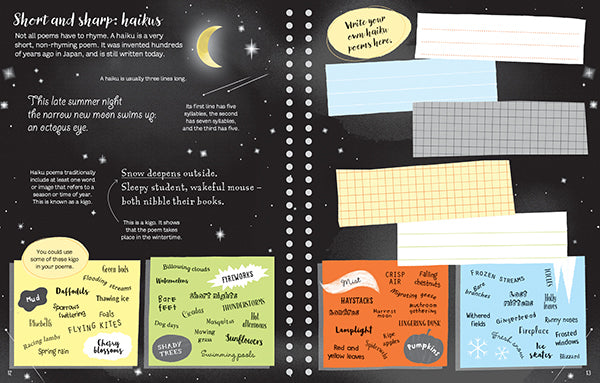 Short and sharp: haikus
Not all poems have to rhyme. A haiku is a very
short, non-rhyming poem. It was invented hundreds
of years ago in Japan, and is still written today.
A haiku is usually three lines long.
This late summer night
the narrow new moon swims up:
an octopus eye.
Its first line has five
syllables, the second
has seven syllables,
and the third has five.
Haiku poems traditionally
include at least one word
or image that refers to a
season or time of year.
This is known as a kigo.
Snow deepens outside.
Sleepy student, wakeful mouse –
both nibble their books.
This is a kigo. It shows
that the poem takes
place in the wintertime.
You could use
some of these kigo
in your poems.
Green buds
Daffodils
Flooding streams
Mud
Sparrows
twittering
Thawing ice
Foals
Bluebells
FLYING KITES
Racing lambs
Spring rain
Cherry
blossoms
12
Billowing clouds
Watermelons
FIREWORKS
Bare
feet
Short nights
Cicadas
THUNDERSTORMS
Dog days
Mosquitos
Hot
afternoons
Mowing
grass
SHADY
TREES
Sunflowers
Swimming pools
Write your
own haiku
poems here.
Mist
CRISP
AIR
Falling
chestnuts
HAYSTACKS
Migrating geese
Harvest
moon
mushroom
gathering
Lamplight
LINGERING DUSK
Red and
yellow leaves
Squirrels
Ripe
apples
Pumpkins
FROZEN STREAMS
Bare
branches
Holly
Withered
fields
Gingerbread
Runny noses
Fireplace
Frosted
windows
Ice
skates
Blizzard
13